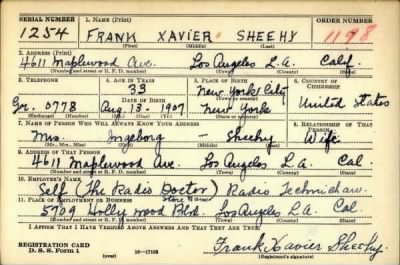 SERIAL NUMBER 1. NAME (Print) ORDER NUMBER
1254 FRANK XAVIER SHEEHY 1198
(First) (Middle) (Last)
2. ADDRESS (Print)
4611 Maplewood Ave. Los Angeles L.A. Calif.
(Number and street or R. F. D. number) (Town) (County) (State)
3. TELEPHONE 4. AGE IN YEARS 5. PLACE OF BIRTH 6. COUNTRY OF CITIZENSHIP
33 New York City
DATE OF BIRTH (Town or county)
Gr. 0778 Aug. 13 - 1907 New York United States
(Exchange) (Number) (Mo.) (Day) (Yr.) (State or country)
7. NAME OF PERSON WHO WILL ALWAYS KNOW YOUR ADDRESS 8. RELATIONSHIP OF THAT PERSON
Mrs. Ingeborg - Sheehy Wife
(Mr., Mrs., Miss) (First) (Middle) (Last)
9. ADDRESS OF THAT PERSON
4611 Maplewood Ave. Los Angeles L.A. Cal
(Number and street or R. F. D. number) (Town) (County) (State)
10. EMPLOYER'S NAME
Self (The Radio Doctor) Radio Technician
Store Name
11. PLACE OF EMPLOYMENT OR BUSINESS
5709 Hollywood Blvd. Los Angeles L.A. Cal.
(Number and street or R. F. D. number) (Town) (County) (State)
I AFFIRM THAT I HAVE VERIFIED ABOVE ANSWERS AND THAT THEY ARE TRUE.
REGISTRATION CARD
D. S. S. Form 1 (over) 16-17105 Frank Xavier Sheehy
(Registrant's signature)